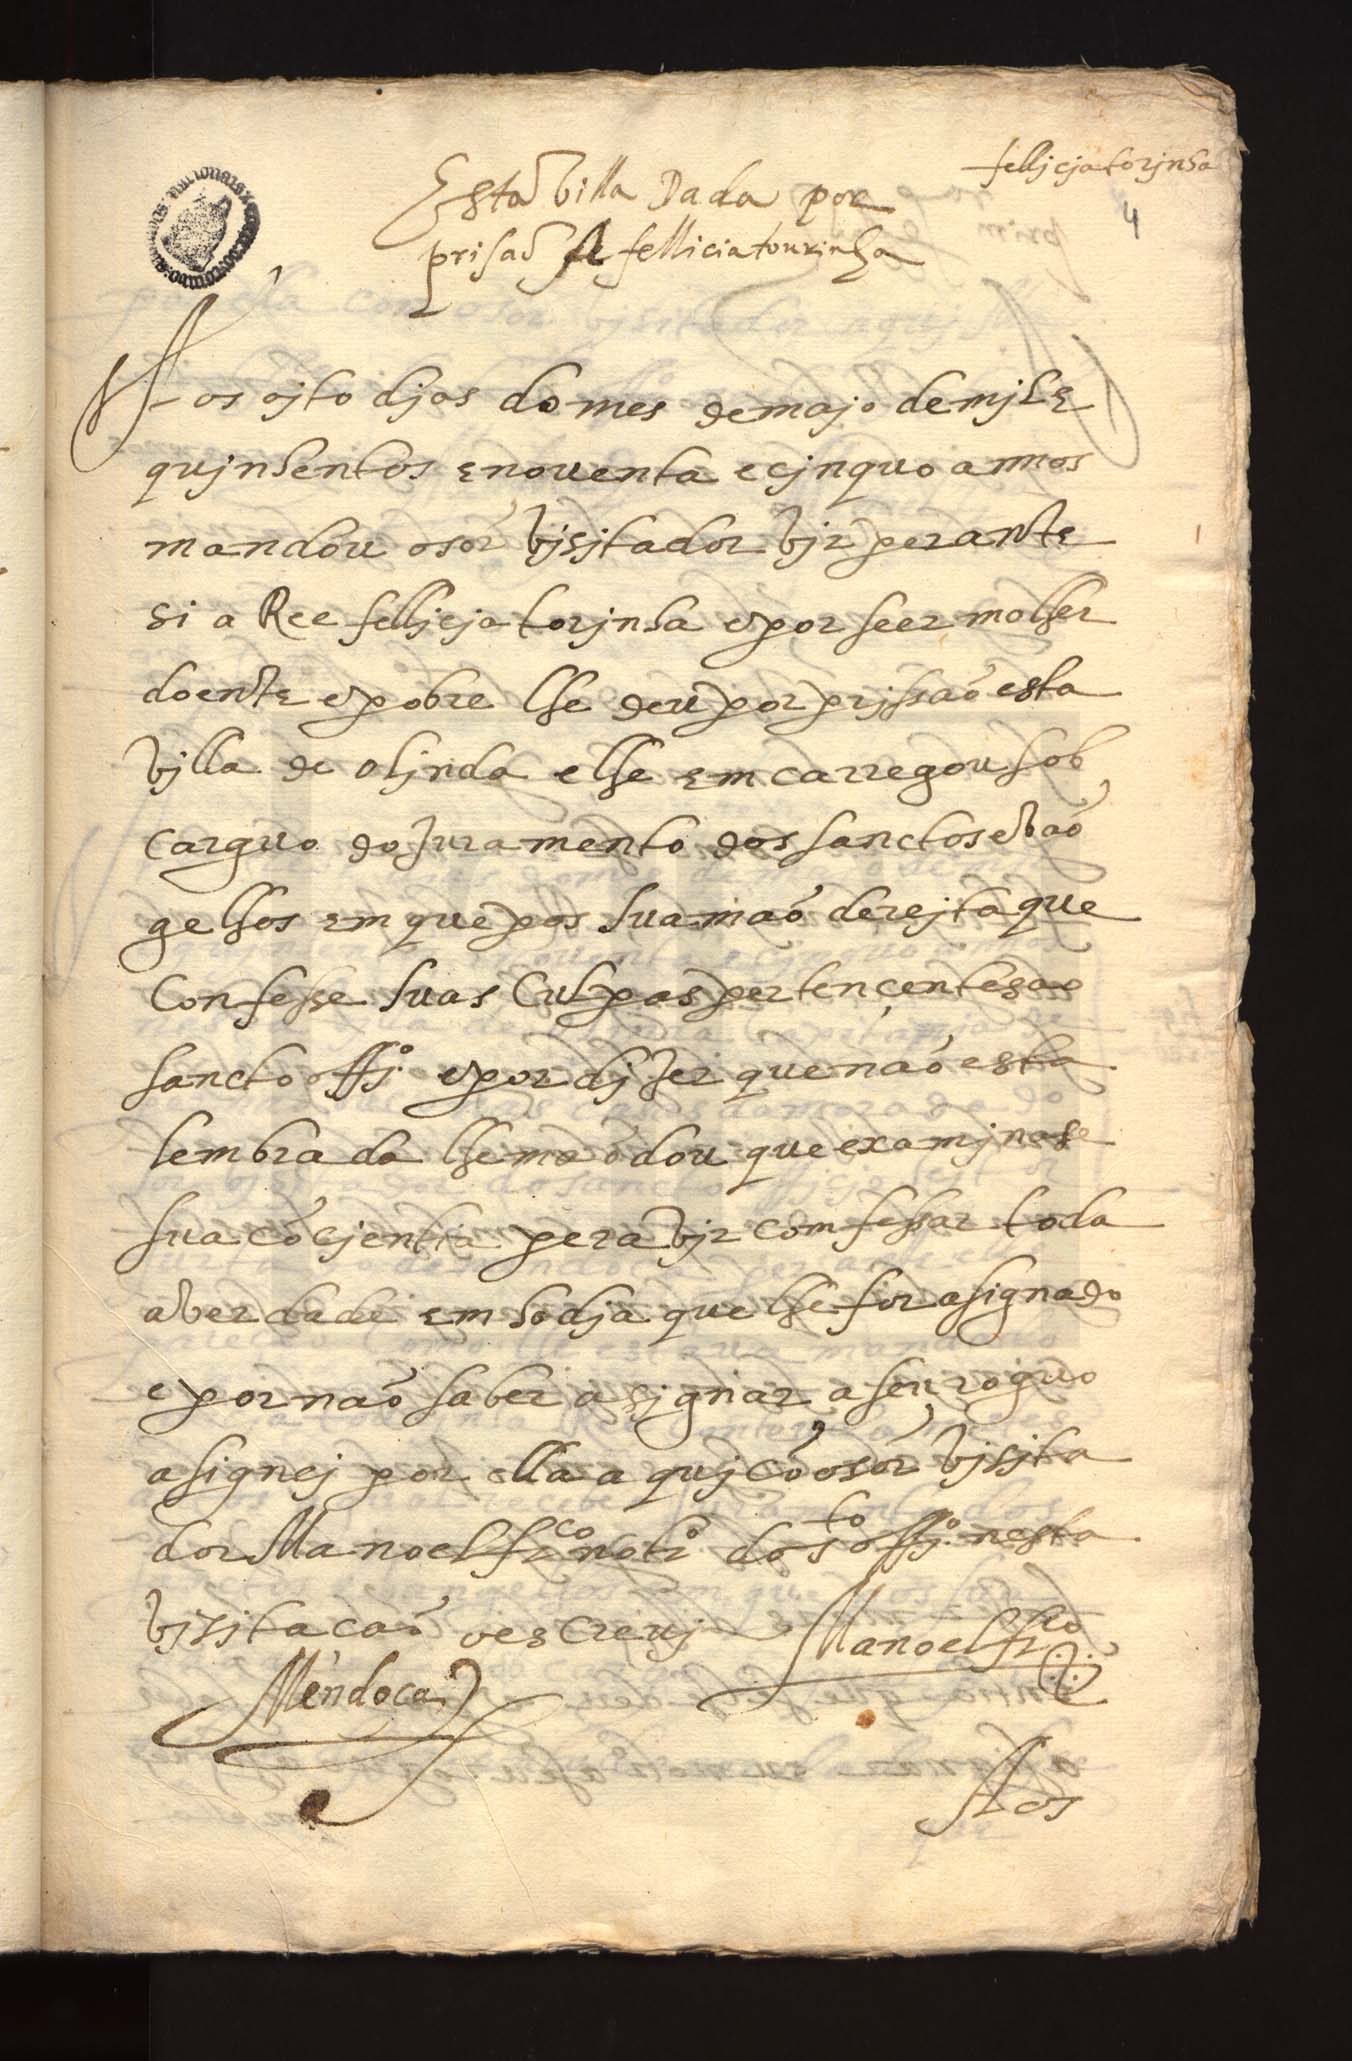 fellicja torjnha
4
Esta villa Dada por
prisaõ fellicia tourinha
Aos ojto djas do mes de majo de mjl e
qujnhentos e noventa e cjnquo annos
mandou o sor vjsjtador vjr perante
si a Ree felljcja torjnha e por seer molher
doente e pobre lhe deu por prjssaõ esta
vjlla de oljnda e lhe emcarregou sob
carguo do juramento dos sanctos evaõ
gelhos em que pos sua maõ derejta que
Confesse suas Culpas pertencentes ao
sancto offjº e por djzer que naõ esta
lembrada lhe maõdou que examjnase
sua cõcjentia pera vjr comfessar toda
a verdade em ho dja que lhe for asignado
e por naõ saber asjgnar a seu roguo
asignej por ella aquj cõ o sor vjsjta
dor Manoel frco notrº do sto offjº nesta
vjsjtacaõ o escrevj Manoel frco
Mendoca
Aos